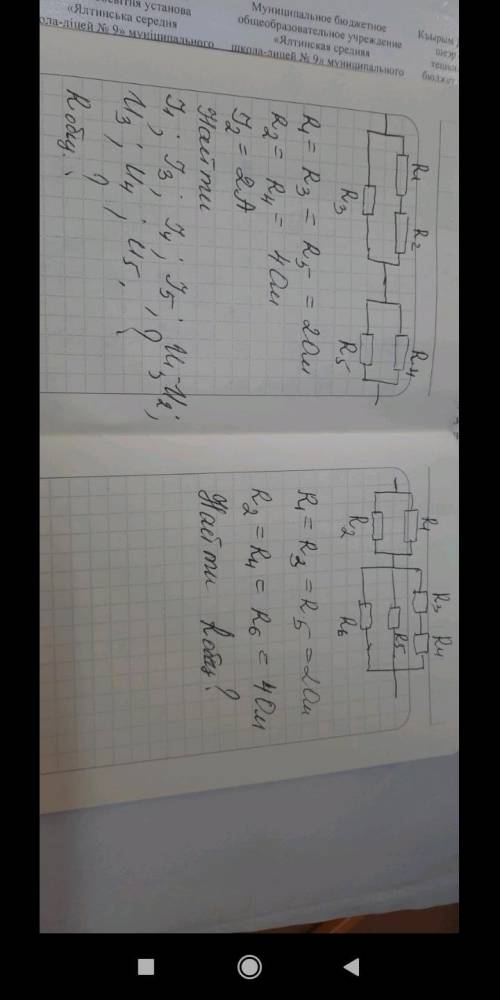 освітня установа
«Ялтинська середня
школа-ліцей № 9» муніципального
Муниципальное бюджетное
общеобразовательное учреждение
«Ялтинская средняя
школа-лицей № 9» муниципального
Къырым
бюджет
R1
R2
R3
R4
R5
R1 = R3 = R5 = 2 Ом
R2 = R4 = 4 Ом
I2 = 2A
Найти
I1; I3; I4; I5; U1; U2;
U3; U4; U5,
Rобщ. ?
R1
R2
R3
R4
R5
R6
R1 = R3 = R5 = 2 Ом
R2 = R4 = R6 = 4 Ом
Найти Rобщ?